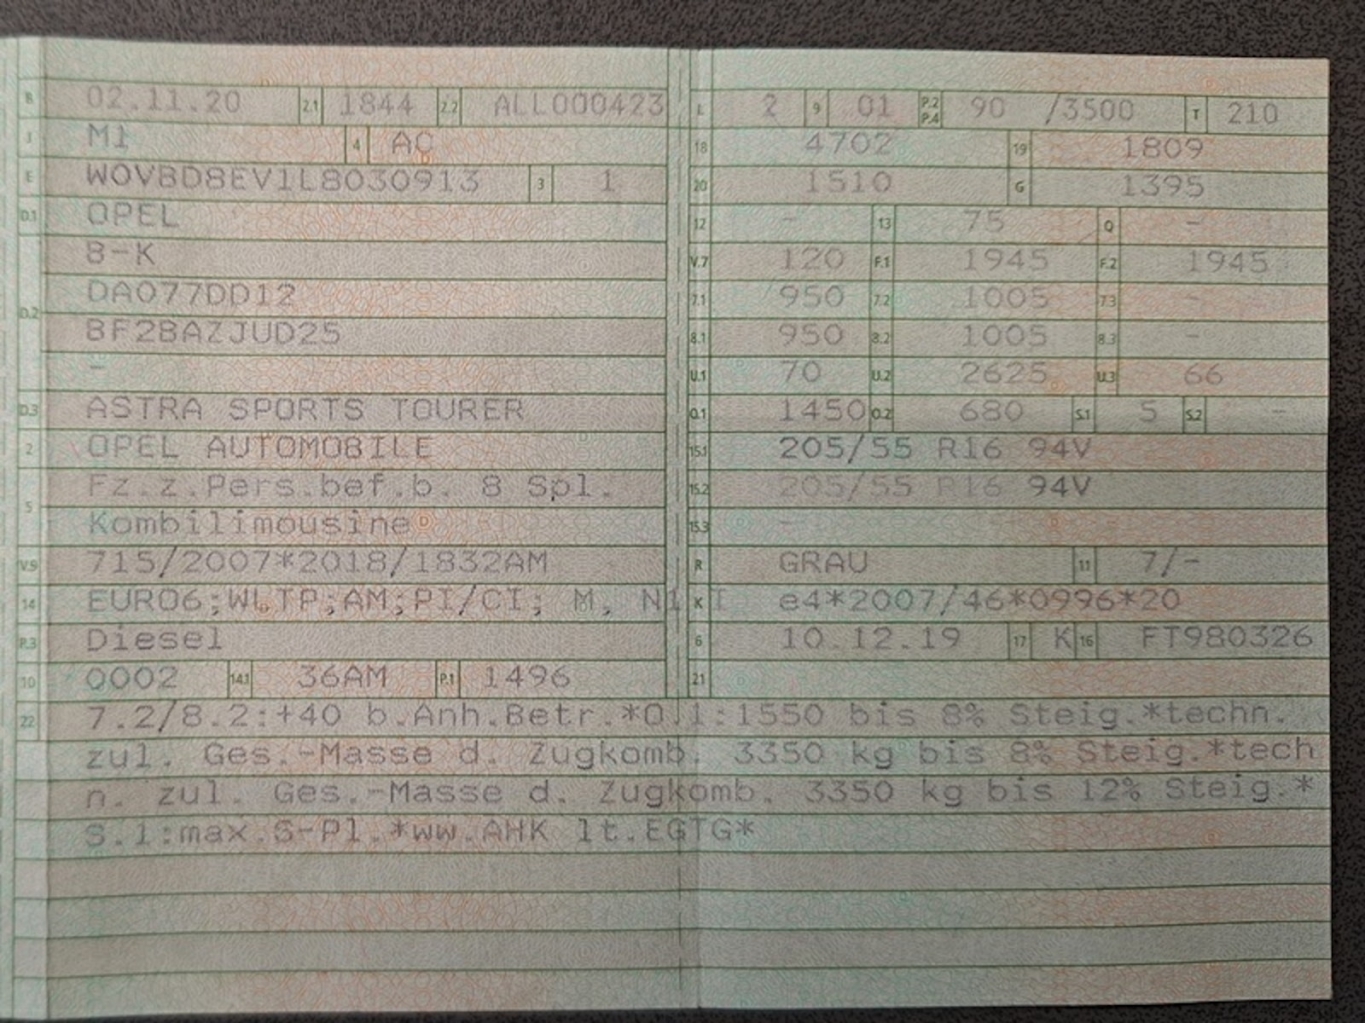 B 02.11.20 2.1 1844 2.2 ALL000423
J M1 4 AC
E W0VBD8EV1L8030913 3 1
D.1 OPEL
B-K
D.2 DA077DD12
BF2BAZJUD25
-
D.3 ASTRA SPORTS TOURER
2 OPEL AUTOMOBILE
5 Fz.z.Pers.bef.b. 8 Spl.
Kombilimousine
V.9 715/2007*2018/1832AM
14 EURO6;WLTP;AM;PI/CI; M, N1 I
P.3 Diesel
10 0002 14.1 36AM P.1 1496
L 2 9 01 P.2 P.4 90 /3500 T 210
18 4702 19 1809
20 1510 G 1395
12 - 13 75 Q -
V.7 120 F.1 1945 F.2 1945
7.1 950 7.2 1005 7.3 -
8.1 950 8.2 1005 8.3 -
U.1 70 U.2 2625 U.3 66
O.1 1450 O.2 680 S.1 5 S.2 -
15.1 205/55 R16 94V
15.2 205/55 R16 94V
15.3 -
R GRAU 11 7/-
K e4*2007/46*0996*20
6 10.12.19 17 K 16 FT980326
21
22 7.2/8.2:+40 b.Anh.Betr.*O.1:1550 bis 8% Steig.*techn.
zul. Ges.-Masse d. Zugkomb. 3350 kg bis 8% Steig.*tech
n. zul. Ges.-Masse d. Zugkomb. 3350 kg bis 12% Steig.*
S.1:max.S-Pl.*ww.AHK lt.EGTG*